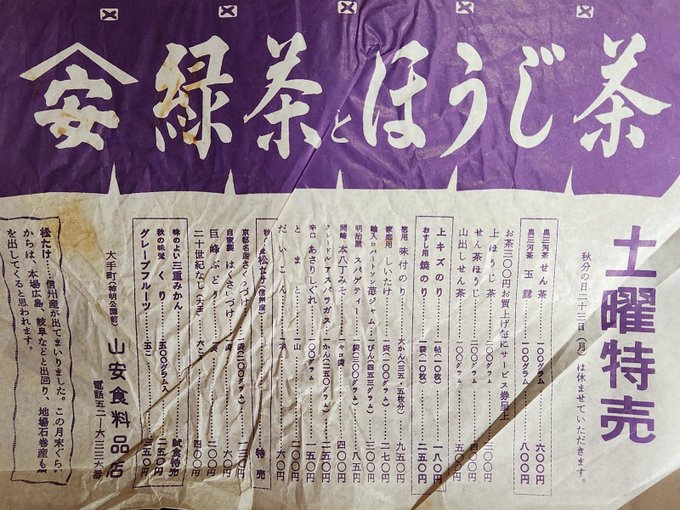 安 緑茶とほうじ茶
土曜特売
秋分の日二十三日(月)は休ませていただきます。
奥三河茶 せん茶……一〇〇グラム 六〇〇円
奥三河茶 玉緑……一〇〇グラム 八〇〇円
お茶三〇〇円お買上げ毎にサービス券呈上
上ほうじ茶
せん茶ほうじ
山出しせん茶
上キズのり……一帖(一〇枚) 一八〇円
おすし用 焼のり……一袋(一〇枚) 二五〇円
徳用 味付のり……大かん
家庭用 しいたけ……一袋
輸入ロバートソン 苺ジャム……一びん(四五三グラム)
明治屋 スパゲティー
岡崎 本八丁みそ……一キロ袋 四〇〇円
クレードル アスパラガス……一かん(二五〇グラム) 二五〇円
辛口 あさりしぐれ……一〇〇グラム 一五〇円
とまと……一山 二〇〇円
だいこん
松たけ(信州産)……特売
自家製 はくさいづけ
巨峰ぶどう
二十世紀なし(大玉)……六こ 四〇〇円
味のよい 三重みかん……試食特売
秋の味覚 くり……五〇〇グラム入 二五〇円
グレープフルーツ……五こ 三五〇円
大手町(神明公園前) 山安食料品店
電話五二一六二三六番
松たけ……信州産が出てまいりました。この月末ぐら
からは、本場広島、岐阜などと出回り、地場石巻産も
を出してくると思われます。